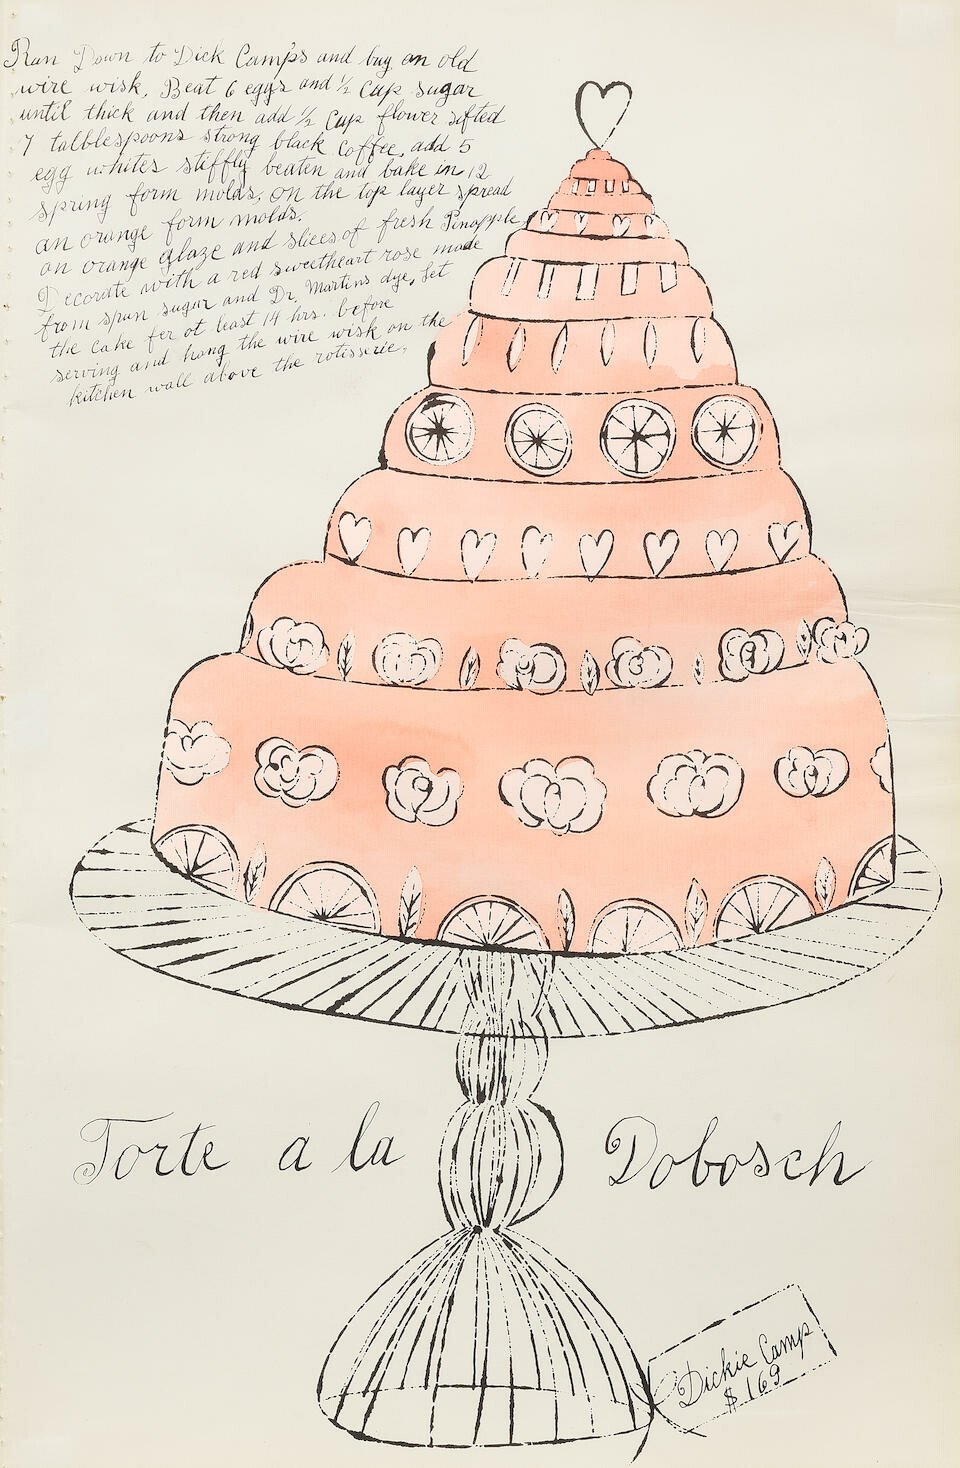 Run Down to Dick Camp's and buy an old
wire wisk, Beat 6 eggs and ½ cup sugar
until thick and then add ½ cup flower sifted
7 talblespoons strong black coffee, add 5
egg whites stiffly beaten and bake in 12
spring form molds, on the top layer spread
an orange form molds.
an orange glaze and slices of fresh Pinapple,
Decorate with a red sweetheart rose made
from spun sugar and Dr. Martins dye, Let
the cake fer ot least 14 hrs. before
serving and hang the wire wisk on the
kitchen wall above the rotisserie.
Torte a la Dobosch
Dickie Camp
$169